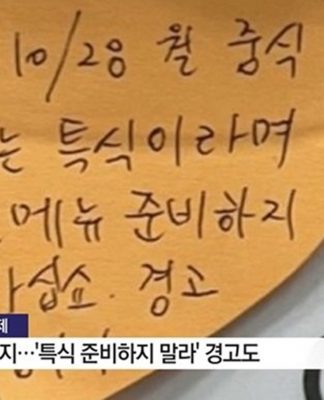 10/28 월 중식
는 특식이라며
메뉴 준비하지
마십쇼. 경고
제
지…'특식 준비하지 말라' 경고도